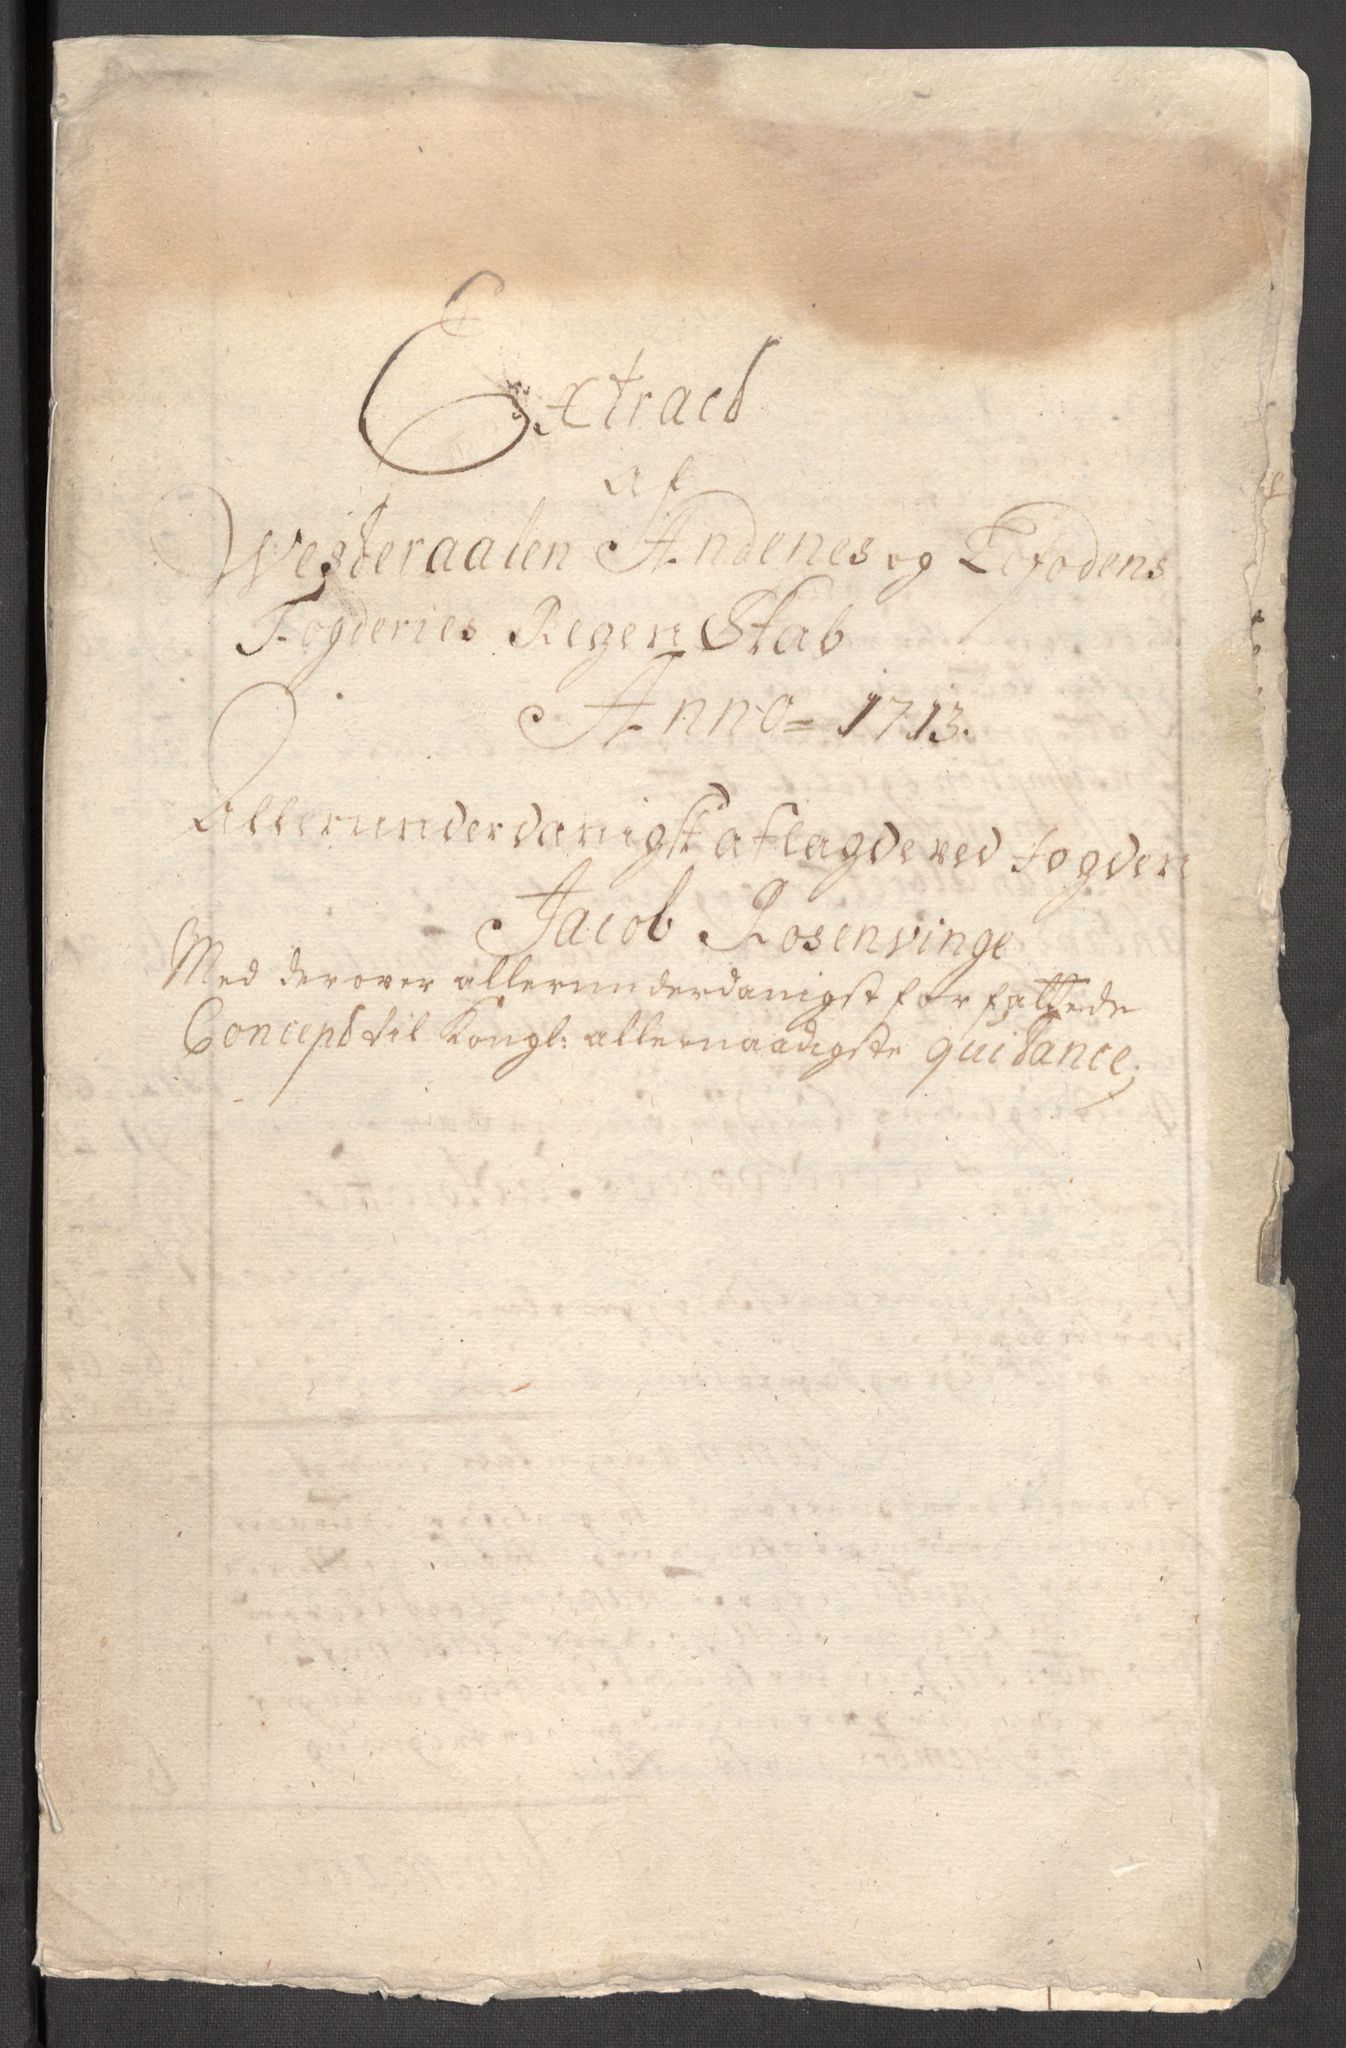 Extract
Af
Westeraalen Andenes og Lofodens
Fogderies Regen Skab
Anno = 1713.
Allerunderdanigst aflagde ved fogden
Jacob Rosenvinge
Med derover allerunderdanigst forfattede
Concept til Kongl: allernaadigste quitance;